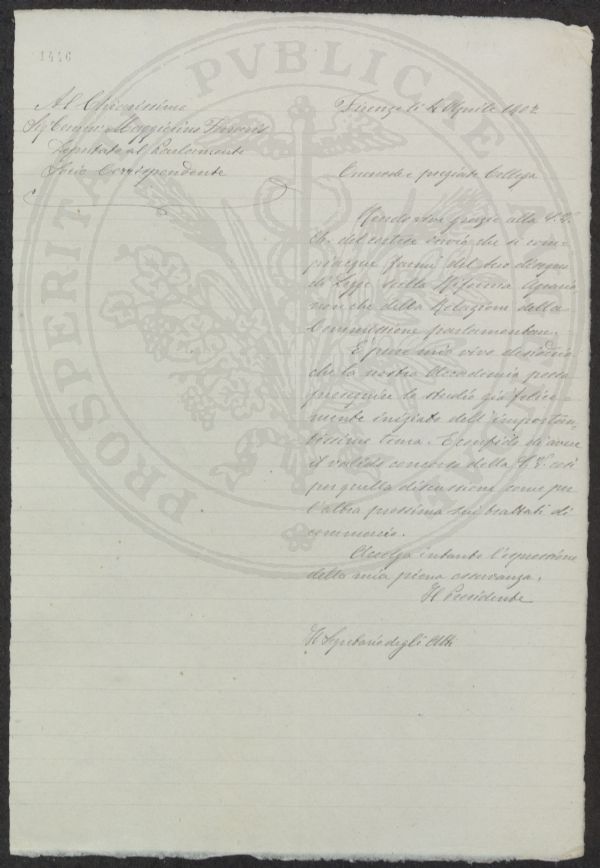 1446
Al Chiarissimo
Sig. Comm. Maggiorino Ferraris
Deputato al Parlamento
Socio Corrispondente
Firenze li 4 Aprile 1902
Onorevole e pregiato Collega
Rendo vive grazie alla S. V.
del cortese invio che si com-
piacque farmi del suo disegno
di Legge sulla Riforma Agraria
nonchè della Relazione della
Commissione parlamentare.
È pure mio vivo desiderio
che la nostra Accademia possa
proseguire lo studio già felice
mente iniziato dell'importan-
tissimo tema. E confido di avere
il valido concorso della S. V. così
per quella discussione come per
l'altra prossima sui trattati di
commercio.
Accolga intanto l'espressione
della mia piena osservanza.
Il Presidente
Il Segretario degli Atti
PROSPERITATI PUBLICAE